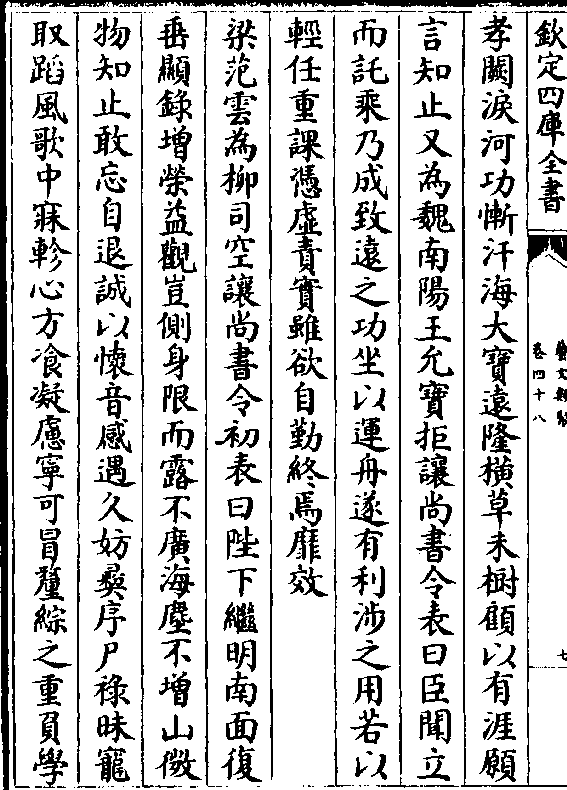 欽定四庫全書
藝文類聚
卷四十八
七
孝闕淚河功慚汗海大寶遠隆橫草未樹顧以有涯願
言知止又為魏南陽王允寶拒讓尚書令表曰臣聞立
而託乘乃成致遠之功坐以運舟遂有利涉之用若以
輕任重課憑虛責實雖欲自勤終焉靡效
梁范雲為柳司空讓尚書令初表曰陛下繼明南面復
垂顯錄增榮益觀豈側身限而露不廣海塵不增山微
物知止敢忘自退誠以懷音感遇久妨彞序尸祿昧寵
取蹈風歌中寐軫心方飡凝慮寧可冒釐綜之重負學